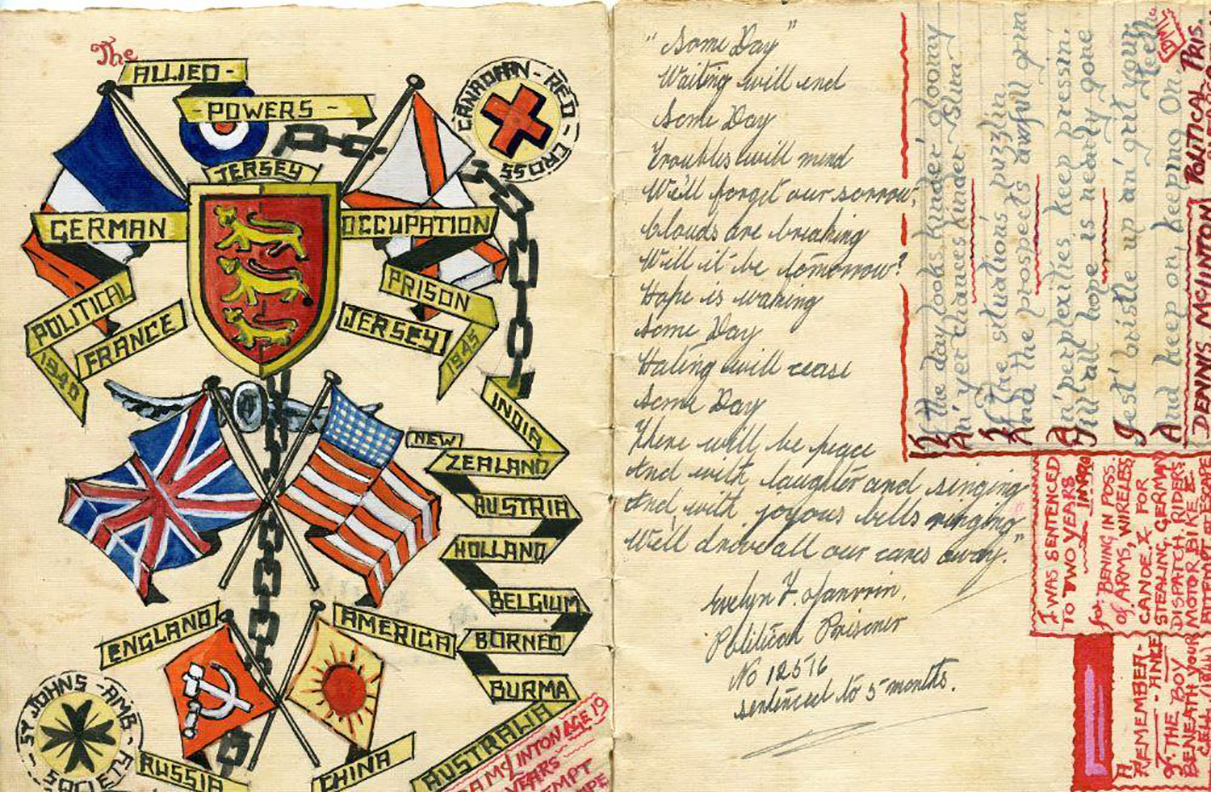 The
ALLIED -
- POWERS -
CANADIAN - RED - CROSS
JERSEY
GERMAN
OCCUPATION
POLITICAL
PRISON
FRANCE
JERSEY
1940
1945
INDIA
NEW
ZEALAND
AUSTRIA
HOLLAND
BELGIUM
ENGLAND
AMERICA
BORNEO
BURMA
ST JOHNS - AMB - SOCIETY
RUSSIA
CHINA
AUSTRALIA
MCLINTON AGE 19
YEARS
"Some Day"
Waiting will end
Some Day
Troubles will mend
We'll forget our sorrow,
Clouds are breaking
Will it be tomorrow?
Hope is waking
Some Day
Hating will cease
Some Day
There will be peace
And with laughter and singing
And with joyous bells ringing
We'll drive all our cares away."
Evelyn F.
Political Prisoner
No 12516
sentenced to 5 months.
If the day looks kinder gloomy
An' yer chances kinder slim
If the situations puzzlin
And the prospects awful grim
An' perplexities keep pressin.
Till all hope is nearly gone
Jest' bristle up an' grit your Teeth
And keep on, keeping On.
DENNIS MCLINTON POLITICAL PRIS.
I WAS SENTENCED
TO TWO YEARS
IMPRO
for BENING IN POSS.
of ARMS, WIRELESS
& FOR
STEALING GERMAN
DISPATCH RIDERS
MOTOR BIKE &
ATTEMPT of ESCAPE
A
REMEMBER-
- ANCE
of THE BOY
BENEATH YOUR
CELL